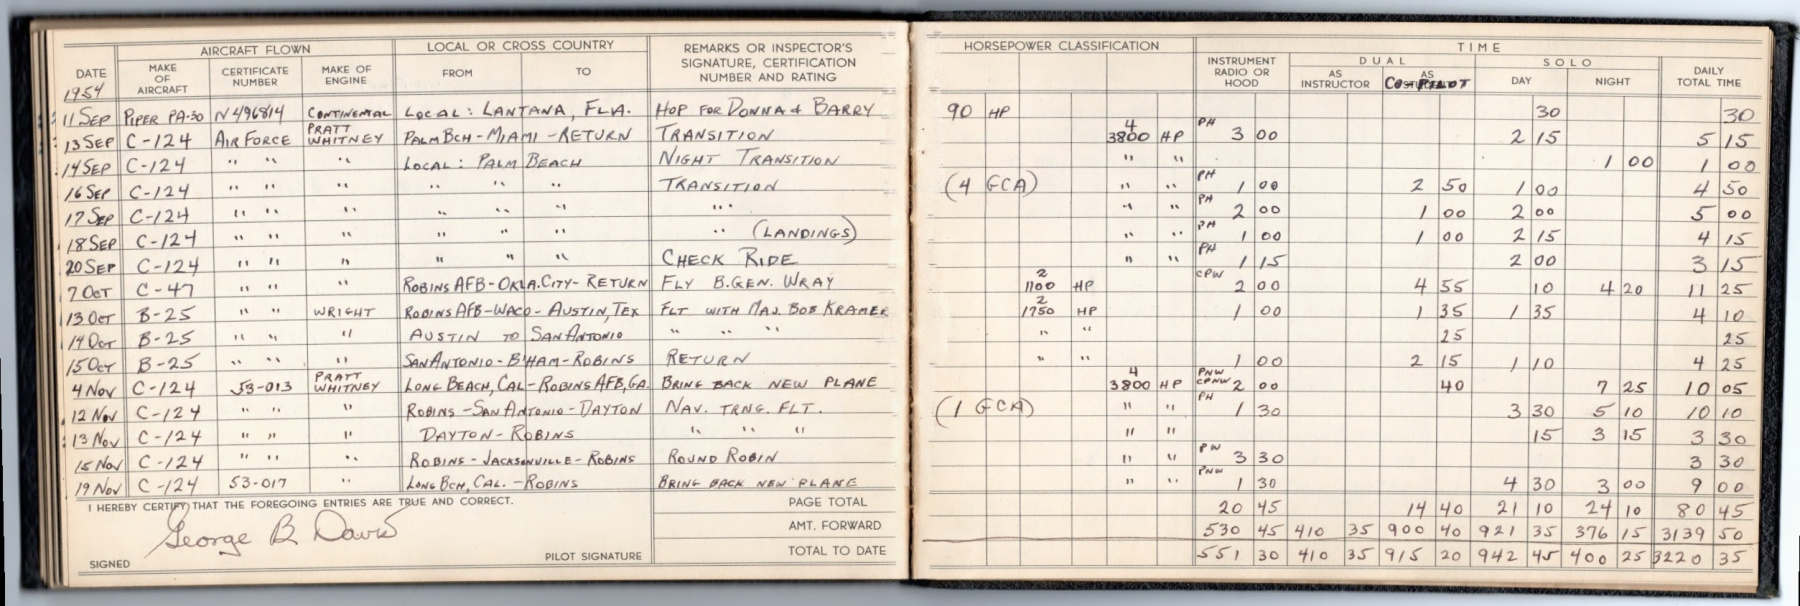 AIRCRAFT FLOWN LOCAL OR CROSS COUNTRY REMARKS OR INSPECTOR'S SIGNATURE, CERTIFICATION NUMBER AND RATING
DATE MAKE OF AIRCRAFT CERTIFICATE NUMBER MAKE OF ENGINE FROM TO
1954
11 SEP PIPER PA-30 N496814 CONTINENTAL LOCAL: LANTANA, FLA. HOP FOR DONNA & BARRY
13 SEP C-124 AIR FORCE PRATT WHITNEY PALM BCH-MIAMI-RETURN TRANSITION
14 SEP C-124 " " " LOCAL: PALM BEACH NIGHT TRANSITION
16 SEP C-124 " " " " " " TRANSITION
17 SEP C-124 " " " " " " " "
18 SEP C-124 " " " " " " " (LANDINGS)
20 SEP C-124 " " " " " " CHECK RIDE
7 OCT C-47 " " " ROBINS AFB-OKLA.CITY-RETURN FLY B.GEN. WRAY
13 OCT B-25 " " WRIGHT ROBINS AFB-WACO-AUSTIN, TEX FLT WITH MAJ. BOB KRAMER
14 OCT B-25 " " " AUSTIN TO SAN ANTONIO " " "
15 OCT B-25 " " " SAN ANTONIO-B'HAM-ROBINS RETURN
4 NOV C-124 53-013 PRATT WHITNEY LONG BEACH, CAL-ROBINS AFB, GA. BRING BACK NEW PLANE
12 NOV C-124 " " " ROBINS-SAN ANTONIO-DAYTON NAV. TRNG. FLT.
13 NOV C-124 " " " DAYTON-ROBINS " " "
15 NOV C-124 " " " ROBINS-JACKSONVILLE-ROBINS ROUND ROBIN
19 NOV C-124 53-017 " LONG BCH, CAL.-ROBINS BRING BACK NEW PLANE
I HEREBY CERTIFY THAT THE FOREGOING ENTRIES ARE TRUE AND CORRECT. PAGE TOTAL
George B Davis AMT. FORWARD
SIGNED PILOT SIGNATURE TOTAL TO DATE
HORSEPOWER CLASSIFICATION TIME
INSTRUMENT RADIO OR HOOD DUAL SOLO DAILY TOTAL TIME
AS INSTRUCTOR AS CO-PILOT DAY NIGHT
90 HP 30 30
4 3800 HP PH 3 00 2 15 5 15
" " 1 00 1 00
(4 GCA) " " PH 1 00 2 50 1 00 4 50
" " PH 2 00 1 00 2 00 5 00
" " PH 1 00 1 00 2 15 4 15
" " PH 1 15 2 00 3 15
2 1100 HP CPW 2 00 4 55 10 4 20 11 25
2 1750 HP 1 00 1 35 1 35 4 10
" " 25 25
" " 1 00 2 15 1 10 4 25
4 3800 HP PNW CPNW 2 00 40 7 25 10 05
(1 GCA) " " PH 1 30 3 30 5 10 10 10
" " 15 3 15 3 30
" " PW 3 30 3 30
" " PNW 1 30 4 30 3 00 9 00
20 45 14 40 21 10 24 10 80 45
530 45 410 35 900 40 921 35 376 15 3139 50
551 30 410 35 915 20 942 45 400 25 3220 35